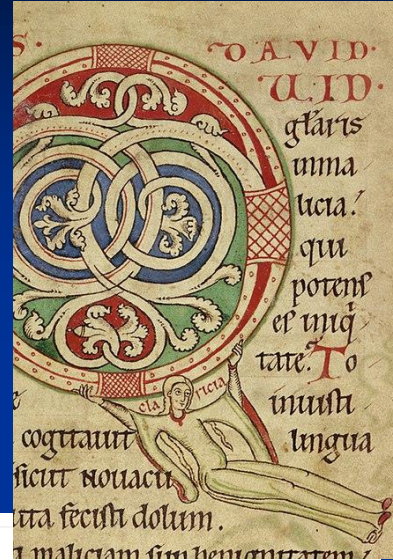 S. DAVID.
UID.
głaris
inma
licia?
qui
potens
es iniq̃
tate. To
claricia
iniusti
cogitauit lingua
sicut nouacu
ita fecisti dolum.
maliciam sup benignitatem